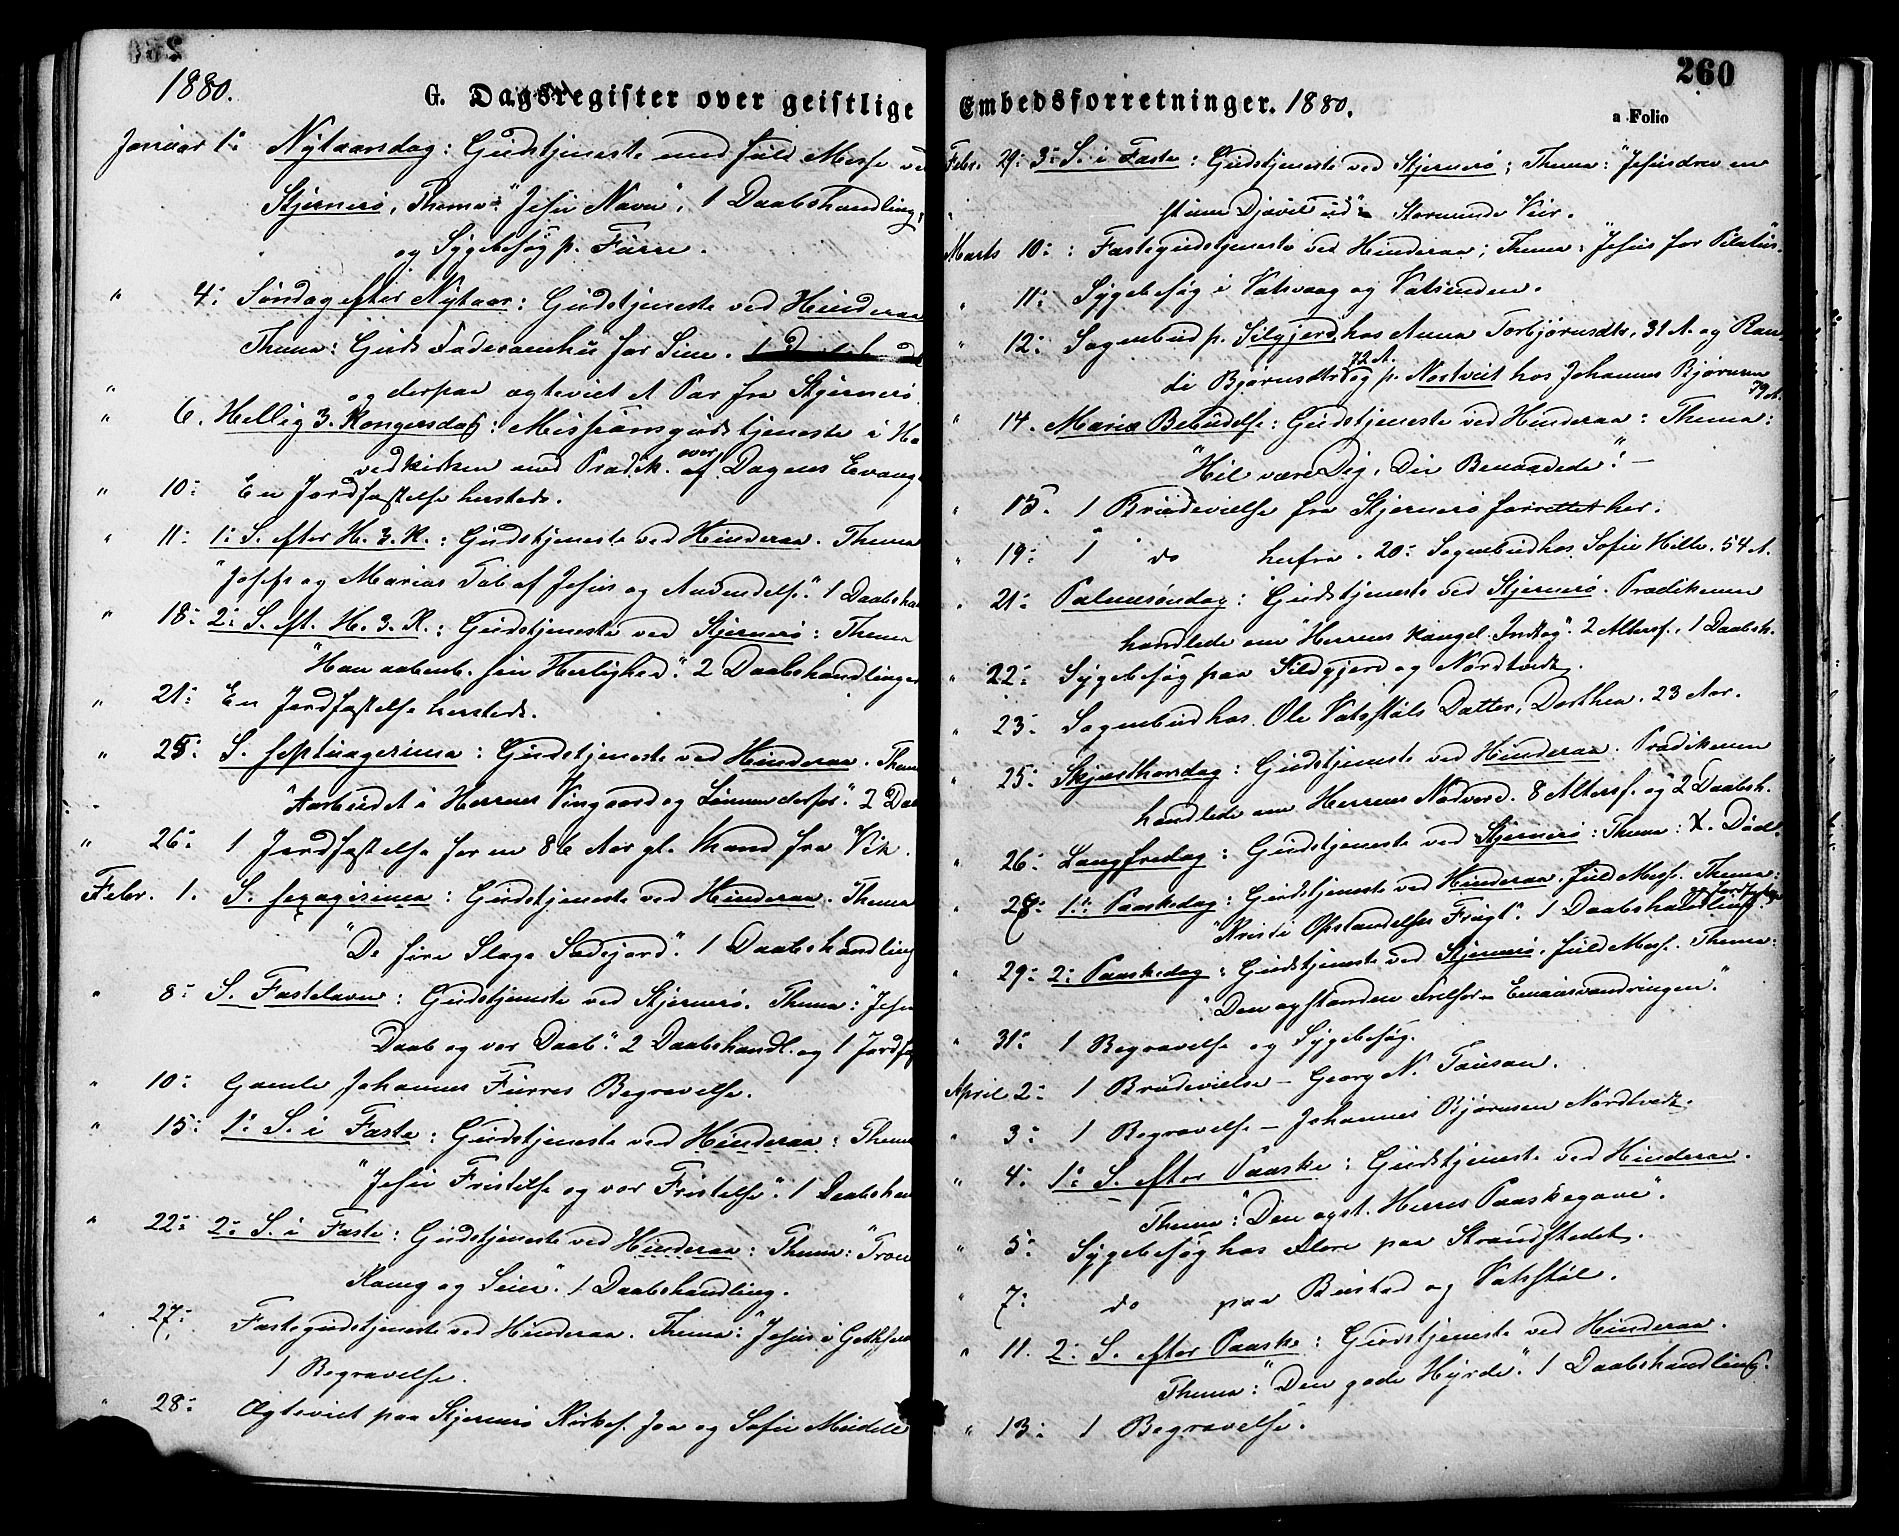 1880.
G. Dagsregister over geistlige
Januar 1: Nytaarsdag: Gudstjeneste med fuld Messe ved
Stjernerø, Thema: "Jesu Navn", 1 Daabshandling;
og Sygebesøg p. Furre.
" 4: Søndag efter Nytaar: Gudstjeneste ved Hinderaa
Thema: Guds Faderomhu for Sine.
og derpaa ægteviet et Par fra Stjernerø
" 6. Hellig 3. Kongersdag: Missionsgudstjeneste i Ho
vedkirken med Prædik. over Dagens Evang.
" 10: En Jordfæstelse hersteds.
" 11: 1: S. efter H. 3. K.: Gudstjeneste ved Hinderaa. Thema
"Josefs og Marias Tab af Jesus og Andendelse". 1 Daabshan
" 18: 2: S. eft. H. 3. K.: Gudstjeneste ved Stjernerø: Thema
"Han aabenb. sin Herlighed". 2 Daabshandlinger
" 21: En Jordfæstelse hersteds.
" 25: S. septuagesima: Gudstjeneste ved Hinderaa. Thema
"Arbeidet i Herrens Vingaard og Lønnen derfor". 2 Daa
" 26: 1 Jordfæstelse for en 86 Aar gl. Mand fra Vik.
Febr. 1. S. sexagesima: Gudstjeneste ved Hinderaa. Thema
"De fire Slags Sædejord". 1 Daabshandling
" 8: S. Fastelavn: Gudstjeneste ved Stjernerø. Thema: "Jesu
Daab og vor Daab". 2 Daabshandl. og 1 Jordf
" 10: Gamle Johannes Furres Begravelse.
" 15: 1: S. i Faste: Gudstjeneste ved Hinderaa: Thema
"Jesu Fristelse og vor Fristelse". 1 Daabshan
" 22: 2: S. i Faste: Gudstjeneste ved Hinderaa: Thema: "Troens
Kamp og Seier". 1 Daabshandling.
" 27: Fastegudstjeneste ved Hinderaa. Thema: "Jesus i Gethsem
1 Begravelse.
" 28: Ægteviet paa Stjernerø Kirke
260
Embedsforretninger. 1880.
a Folio
Febr. 29: 3: S. i Faste: Gudstjeneste ved Stjernerø; Thema: "Jesus drev en
stum Djævel ud" - Stormende Veir.
Marts 10: : Fastegudstjeneste ved Hinderaa; Thema: "Jesus for Pilatus.
" 11: Sygebesøg i Vatsvaag og Vatsenden.
" 12: Sognebud p. Silgjerd hos Anna Torbjørnsdtr, 31 A. og Ran
di Bjørnsdtr 72 A. og p. Nortveit hos Johannes Bjørnsen
79 A.
" 14. Mariæ Bebudelse: Gudstjeneste ved Hinderaa: Thema:
"Hil være Dig, Du Benaadede"! -
" 15. 1 Brudevielse fra Stjernerø forrettet her.
" 19: 1 do herfra. 20: Sognebud hos Sofie Hille. 54 A.
" 21: Palmesøndag: Gudstjeneste ved Stjernerø. Prædikenen
handlede om "Herrens kongel. Indtog". 2 Altersf., 1 Daabsh.
" 22: Sygebesøg paa Sildgjerd og Nordtvedt.
" 23: Sognebud hos Ole Vatsstøls Datter, Dorthea, 23 Aar.
" 25: Skjærthorsdag: Gudstjeneste ved Hinderaa. Prædikenen
handlede om Herrens Nadverd. 8 Altersf. og 2 Daabsh.
" 26: Langfredag: Gudstjeneste ved Stjernerø: Thema: X. Død.
" 28: 1: Paaskedag: Gudstjeneste ved Hinderaa. fuld Mess. Thema:
"Kristi Opstandelses Frugt". 1 Daabshandling og Jordfæstelse
" 29: 2: Paaskedag: Gudstjeneste ved Stjernerø. fuld Mess. Thema:
"Den opstandne Frelser - Emausvandringen."
" 31: 1 Begravelse og Sygebesøg.
April 2: 1 Brudevielse - Georg N. Tausan.
" 3: 1 Begravelse - Johannes Bjørnsen Nordtvedt.
" 4: 1: S. efter Paaske: Gudstjeneste ved Hinderaa.
Thema: "Den opst. Herres Paaskegave".
" 5: Sygebesøg hos Flere paa Strandstedet.
" 7: do paa Bustad og Vatsstøl.
" 11. 2: S. efter Paaske: Gudstjeneste ved Hinderaa.
Thema: "Den gode Hyrde". 1 Daabshandling.
" 13: 1 Begravelse.